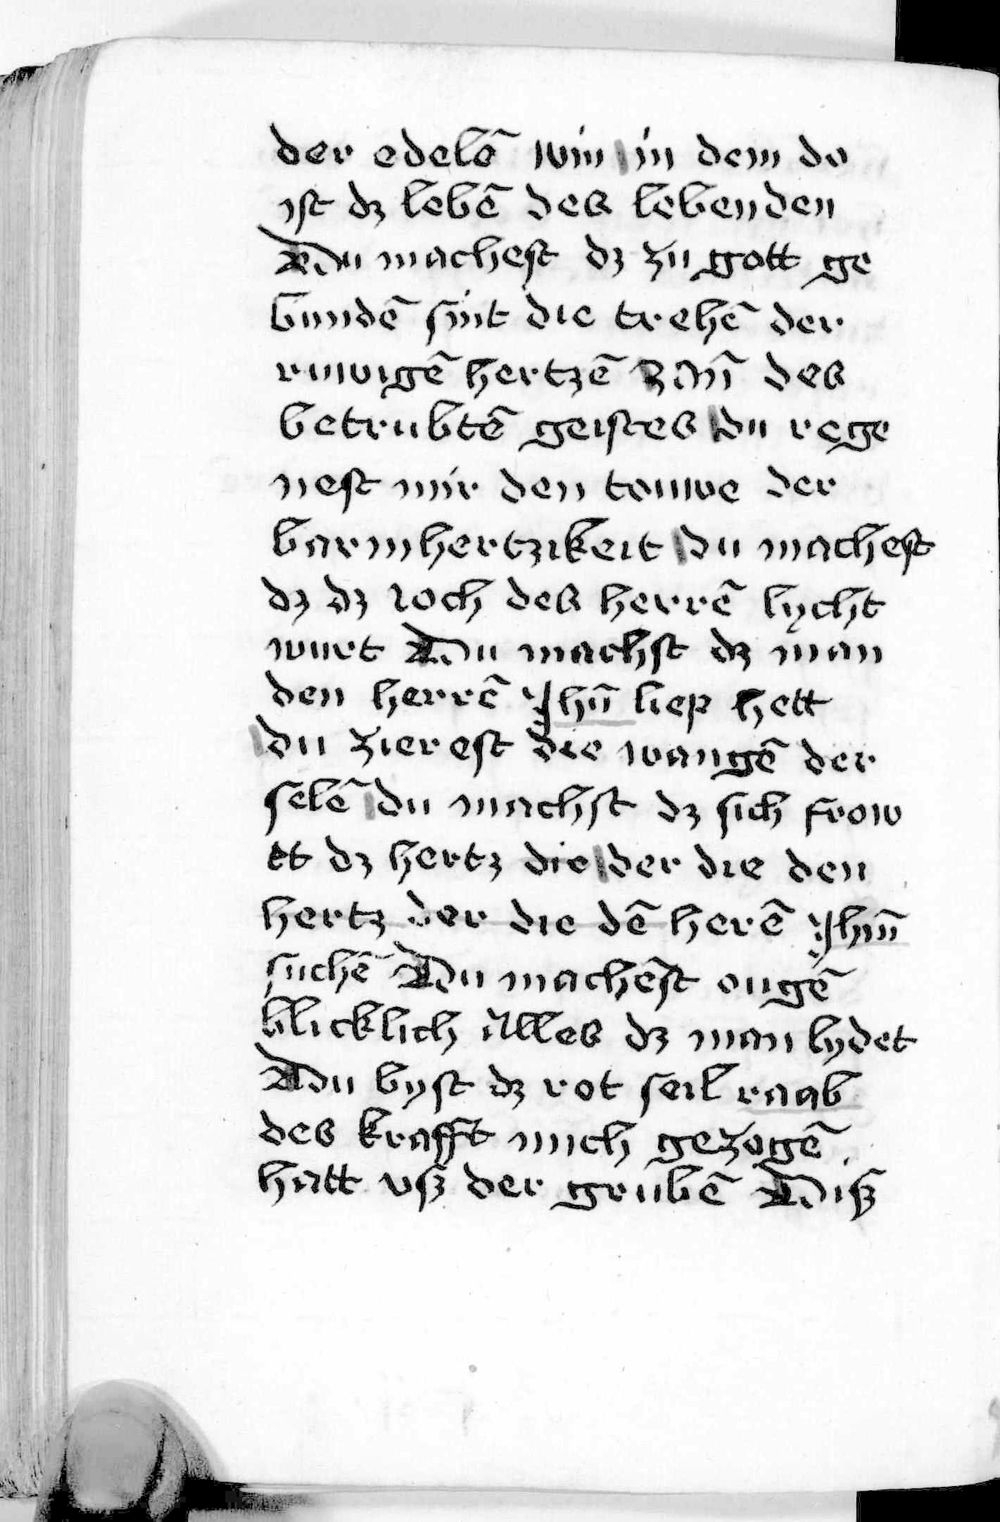 der edelē win in dem do
ist dz lebē des lebenden
Du machest dz zu gott ge
bundē sint die trehē der
ruwigē hertzē Zañ des
betrubtē geistes du rege
nest mir den touwe der
barmhertzikeit du machest
dz dz ioch des herrē lycht
wurt Du machst dz man
den herrē Jhū liep hett
du zierest die wangē der
selē du machst dz sich frow
et dz hertz die der die den
hertz der die dē herē Jhū
suchē Du machēst ougē
blicklich alles dz man lydet
Du byst dz rot seil raab
des krafft mich gezogē
hatt vsz der grubē Disz